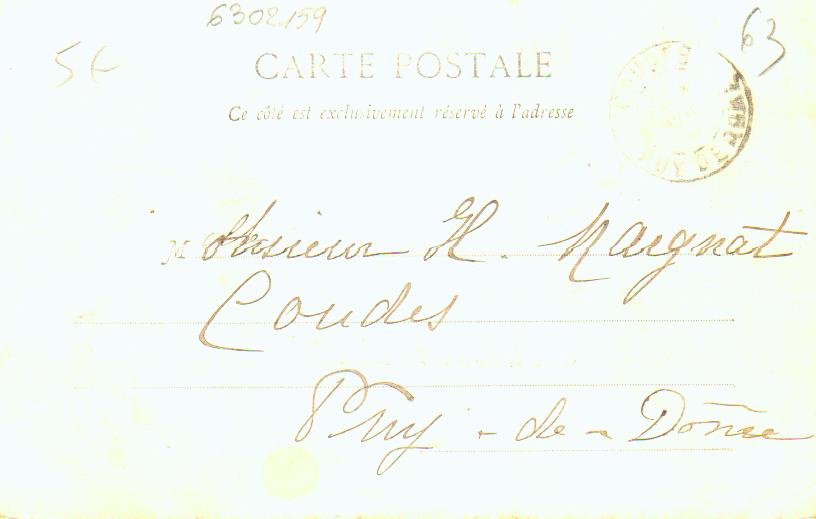 6302159
5€
63
CARTE POSTALE
Ce côté est exclusivement réservé à l'adresse
PUY DE DOME
M Monsieur H. Maignat
Coudes
Puy-de-Dôme